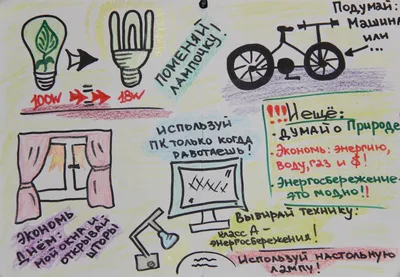 100W
18W
ПОМЕНЯЙ
ЛАМПОЧКУ!
Подумай:
Машина
или
...
ИСПОЛЬЗУЙ
ПК ТОЛЬКО КОГДА
РАБОТАЕШЬ!
!!! И ещё:
- ДУМАЙ о Природе
- Экономь: энергию,
воду, газ и $!
- Энергосбережение-
это модно!!
ЭКОНОМЬ
ДНЁМ:
МОЙ ОКНА И
ОТКРЫВАЙ
ШТОРЫ
Выбирай технику:
класс А -
энергосбережения!
Используй настольную
лампу!